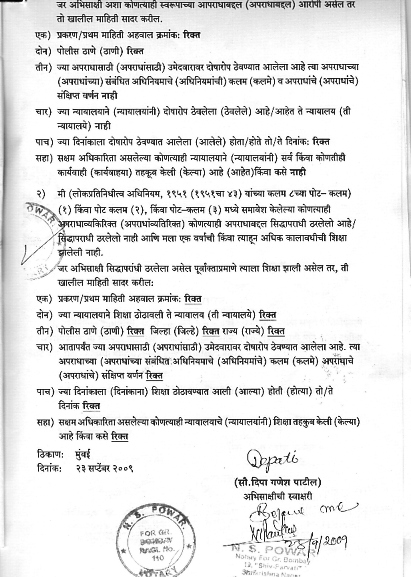 जर अभिसाक्षी अशा कोणत्याही स्वरूपाच्या अपराधाबद्दल (अपराधाबद्दल) आरोपी असेल तर
तो खालील माहिती सादर करील.
एक) प्रकरण/प्रथम माहिती अहवाल क्रमांक: रिक्त
दोन) पोलीस ठाणे (ठाणी) रिक्त
तीन) ज्या अपराधासाठी (अपराधांसाठी) उमेदवारावर दोषारोप ठेवण्यात आलेला आहे त्या अपराधाच्या
(अपराधांच्या) संबंधित अधिनियमाचे (अधिनियमांची) कलम (कलमे) व अपराधांचे (अपराधांचे)
संक्षिप्त वर्णन नाही
चार) ज्या न्यायालयाने (न्यायालयांनी) दोषारोप ठेवलेला (ठेवलेले) आहे/आहेत ते न्यायालय (ती
न्यायालये) नाही
पाच) ज्या दिनांकाला दोषारोप ठेवण्यात आलेला (आलेले) होता/होते तो/ते दिनांक: रिक्त
सहा) सक्षम अधिकारिता असलेल्या कोणत्याही न्यायालयाने (न्यायालयांनी) सर्व किंवा कोणतीही
कार्यवाही (कार्यवाह्या) तहकूब केली (केल्या) आहे (आहेत)किंवा कसे नाही
२) मी (लोकप्रतिनिधीत्व अधिनियम, १९५१ (१९५१चा ४३) यांच्या कलम ८च्या पोट- कलम)
(१) किंवा पोट-कलम (२), किंवा पोट-कलम (३) मध्ये समावेश केलेल्या कोणत्याही
अपराधाव्यतिरिक्त (अपराधांव्यतिरिक्त) कोणत्याही अपराधाबद्दल सिद्धापराधी ठरलेलो आहे/
सिद्धापराधी ठरलेलो नाही आणि मला एक वर्षाची किंवा त्याहून अधिक कालावधीची शिक्षा
झालेली नाही.
जर अभिसाक्षी सिद्धापराधी ठरलेला असेल पूर्वोक्ताप्रमाणे त्याला शिक्षा झाली असेल तर, तो
खालील माहिती सादर करील:
एक) प्रकरण/प्रथम माहिती अहवाल क्रमांक: रिक्त
दोन) ज्या न्यायालयाने शिक्षा ठोठावली ते न्यायालय (ती न्यायालये) रिक्त
तीन) पोलीस ठाणे (ठाणी) रिक्त जिल्हा (जिल्हे) रिक्त राज्य (राज्ये) रिक्त
चार) आतापर्यंत ज्या अपराधासाठी (अपराधांसाठी) उमेदवारावर दोषारोप ठेवण्यात आलेला आहे. त्या
अपराधाच्या (अपराधांच्या) संबंधित अधिनियमाचे (अधिनियमांचे) कलम (कलमे) अपराधाचे
(अपराधांचे) संक्षिप्त वर्णन रिक्त
पाच) ज्या दिनांकाला (दिनांकाना) शिक्षा ठोठावण्यात आली (आल्या) होती (होत्या) तो/ते
दिनांक रिक्त
सहा) सक्षम अधिकारिता असलेल्या कोणत्याही न्यायालयाचे (न्यायालयांनी) शिक्षा तहकूब केली (केल्या)
आहे किंवा कसे रिक्त
ठिकाण: मुंबई
दिनांक: २३ सप्टेंबर २००९
(सौ.दिपा गणेश पाटील)
अभिसाक्षीची स्वाक्षरी
Before me
23/9/2009
N. S. POWAR
FOR GR.
BOMBAY
REGI. No.
110
NOTARY
N. S. POWAR
Notary For Gr. Bombay
12, "Shiv-Parvati"